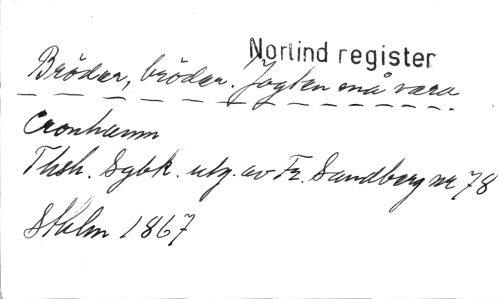 Norlind register
Bröder, bröder. Jagten må vara
Cronhamn
Thsh. Sgbk. utg. av Fr. Sandberg nr 78
Sthlm 1867